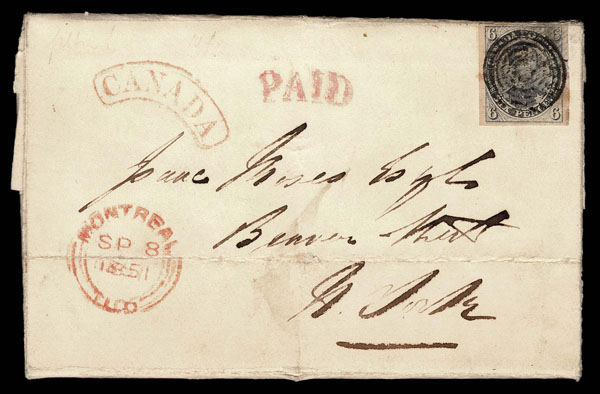 CANADA
PAID
6 CANADA 6
6 SIX PENCE 6
Isaac Moses Esq
Beaver Street
N. York
MONTREAL
SP 8
1851
L.C.